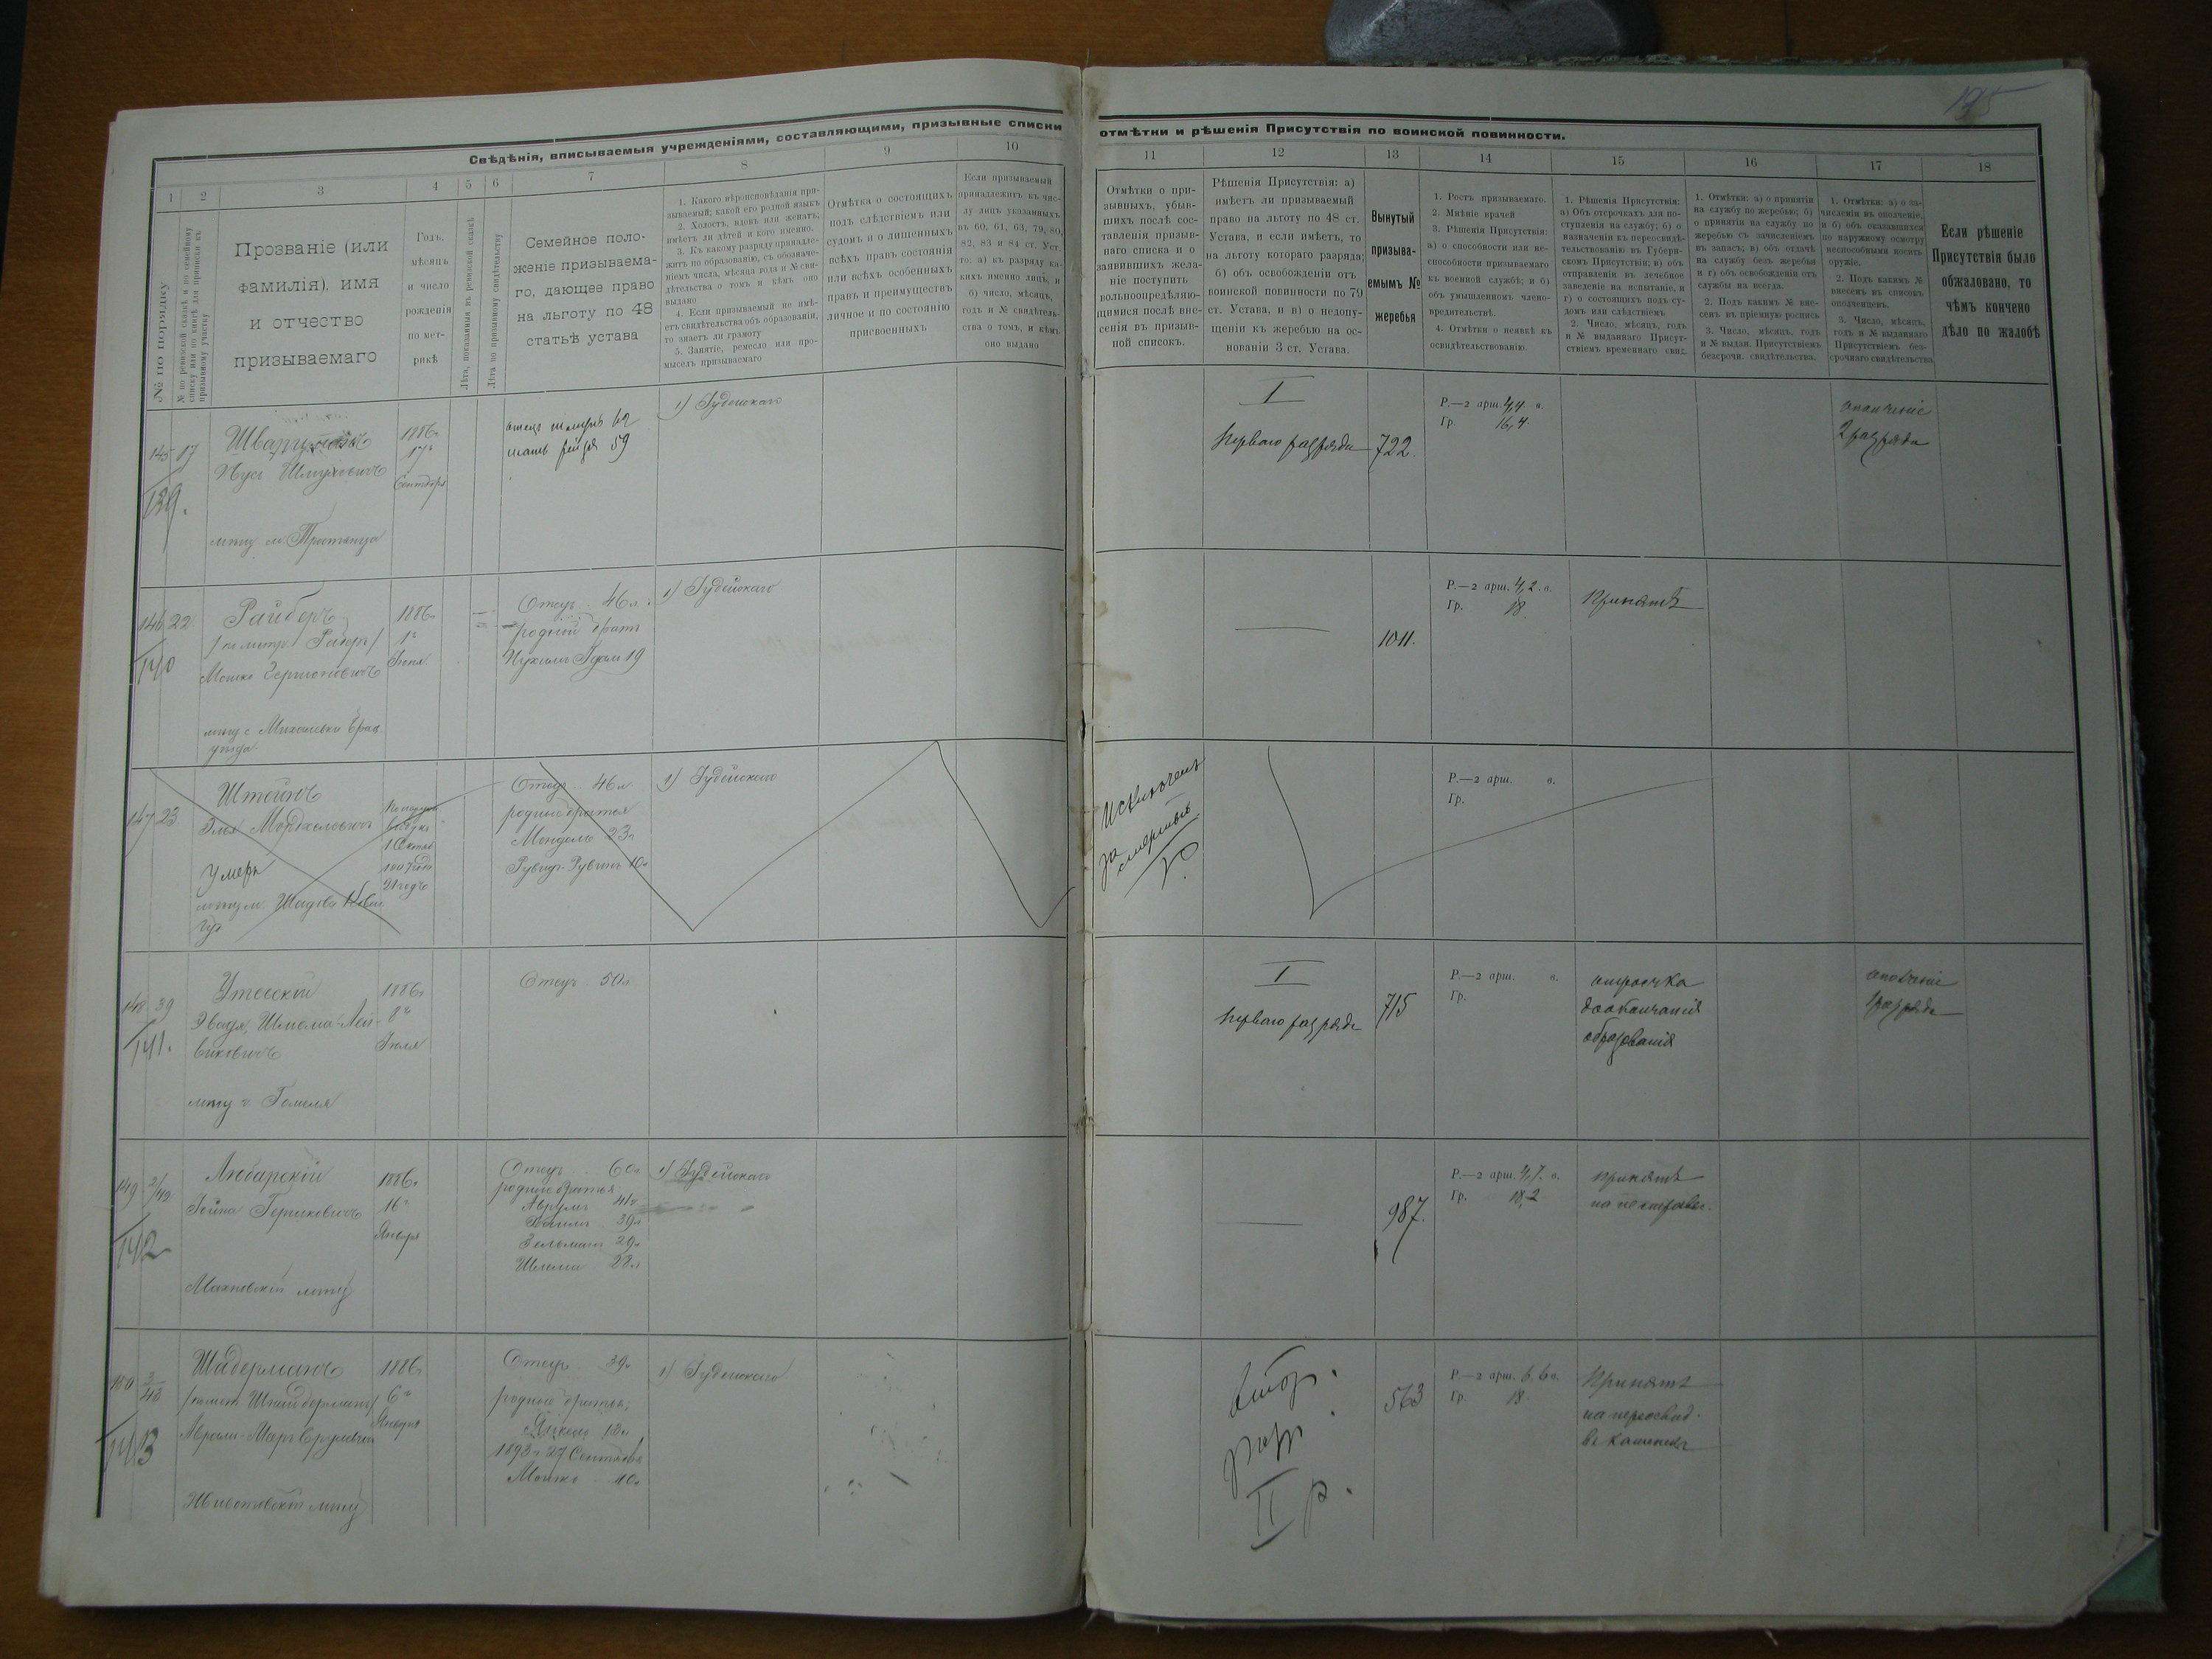 195
Свѣдѣнія, вписываемыя учрежденіями, составляющими, призывные списки
отмѣтки и рѣшенія Присутствія по воинской повинности.
1 2 3 4 5 6 7 8 9 10
11 12 13 14 15 16 17 18
№ по порядку
№ по ревизской сказкѣ и по семейному
списку или по книгѣ для приписки къ
призывному участку
Прозваніе (или
фамилія), имя
и отчество
призываемаго
Годъ,
мѣсяцъ
и число
рожденія
по мет-
рикѣ
Лѣта, показанныя въ ревизской сказкѣ
Лѣта по призывному свидѣтельству
Семейное поло-
женіе призываема-
го, дающее право
на льготу по 48
статьѣ устава
1. Какого вѣроисповѣданія при-
зываемый; какой его родной языкъ
2. Холостъ, вдовъ или женатъ;
имѣетъ ли дѣтей и кого именно.
3. Къ какому разряду принадле-
житъ по образованію, съ обозначе-
ніемъ числа, мѣсяца года и № сви-
дѣтельства о томъ и кѣмъ оно
выдано
4. Если призываемый не имѣ-
етъ свидѣтельства объ образованіи,
то знаетъ ли грамоту
5. Занятіе, ремесло или про-
мыселъ призываемаго
Отмѣтка о состоящихъ
подъ слѣдствіемъ или
судомъ и о лишенныхъ
всѣхъ правъ состоянія
или всѣхъ особенныхъ
правъ и преимуществъ
личное и по состоянію
присвоенныхъ
Если призываемый
принадлежитъ къ чис-
лу лицъ указанныхъ
въ 60, 61, 63, 79, 80,
82, 83 и 84 ст. Уст.
то: а) къ разряду ка-
кихъ именно лицъ, и
б) число, мѣсяцъ,
годъ и № свидѣтель-
ства о томъ, и кѣмъ
оно выдано
Отмѣтки о при-
зывныхъ, убыв-
шихъ послѣ сос-
тавленія призыв-
наго списка и о
заявившихъ жела-
ніе поступить
вольноопредѣляю-
щимися послѣ вне-
сенія въ призыв-
ной списокъ.
Рѣшенія Присутствія: а)
имѣетъ ли призываемый
право на льготу по 48 ст.
Устава, и если имѣетъ, то
на льготу котораго разряда;
б) объ освобожденіи отъ
воинской повинности по 79
ст. Устава, и в) о недопу-
щеніи къ жеребью на ос-
нованіи 3 ст. Устава.
Вынутый
призыва-
емымъ №
жеребья
1. Ростъ призываемаго.
2. Мнѣніе врачей
3. Рѣшенія Присутствія:
а) о способности или не-
способности призываемаго
къ военной службѣ; и б)
объ умышленномъ члено-
вредительствѣ.
4. Отмѣтки о неявкѣ къ
освидѣтельствованію.
1. Рѣшенія Присутствія:
а) Объ отсрочкахъ для по-
ступленія на службу; б) о
назначеніи къ переосвидѣ-
тельствованію въ Губерн-
скомъ Присутствіи; в) объ
отправленіи въ лечебное
заведеніе на испытаніе, и
г) о состоящихъ подъ су-
домъ или слѣдствіемъ
2. Число, мѣсяцъ, годъ
и № выданнаго Присут-
ствіемъ временнаго свид.
1. Отмѣтки: а) о принятіи
на службу по жеребью; б)
о принятіи на службу по
жеребью съ зачисленіемъ
въ запасъ; в) объ отдачѣ
на службу безъ жеребья
и г) объ освобожденіи отъ
службы на всегда.
2. Подъ какимъ № вне-
сенъ въ пріемную роспись
3. Число, мѣсяцъ, годъ
и № выдан. Присутствіемъ
безсрочн. свидѣтельства.
1. Отмѣтки: а) о за-
численіи въ ополченіе,
и б) объ оказавшихся
по наружному осмотру
неспособными носить
оружіе.
2. Подъ какимъ №
внесенъ въ списокъ
ополченцевъ.
3. Число, мѣсяцъ,
годъ и № выданнаго
Присутствіемъ без-
срочнаго свидѣтельства
Если рѣшеніе
Присутствія было
обжаловано, то
чѣмъ кончено
дѣло по жалобѣ
145 17
139.
Нусъ Шмулевичъ
1886г
17го
Сентября
отецъ шмуль 62
мать рейзя 59
1) Іудейскаго
I
перваго разряда
722.
Р.—2 арш. 4,4 в.
Гр. 16,4
ополченіе
2 разряда
146 22.
140
Райберъ
Мошко
1886г
1го
Отецъ 46л.
родной братъ
19
1) Іудейскаго
1011.
Р.—2 арш. 4,2. в.
Гр. 18
Принятъ
147 23
Штейнъ
Элья Мордхелевичъ
Умеръ
21годъ
Отецъ 46л
родные братья
Мендель 23л
Рувидъ-Рувинъ 10л
1) Іудейскаго
Исключенъ
за смертью
Р.—2 арш. в.
Гр.
148 39
141.
Утевскій
1886г
8го
Іюля
мѣщ г. Гомеля
Отецъ 50л
I
перваго разряда
715
Р.—2 арш. в.
Гр.
отсрочка
до окончанія
образованія
ополченіе
1 разряда
149 2/42
142
Любарскій
Іойна Гершковичъ
Махновскій мѣщ
1886г
16го
Января
Отецъ 60л
родные братья:
Аврумъ 41г
39л
Зельманъ 29л
Шлема 28л
1) Іудейскаго
987.
Р.—2 арш. 4,7. в.
Гр. 18,2
принятъ
150 3/43
143
Шадерманъ
1886г
6го
Января
Отецъ 39л
родные братья;
1893г 27 Сентября
Мошко 10л
1) Іудейскаго
втор.
разр.
II р.
563
Р.—2 арш. 6,6 в.
Гр. 18
Принятъ
на переосвид.